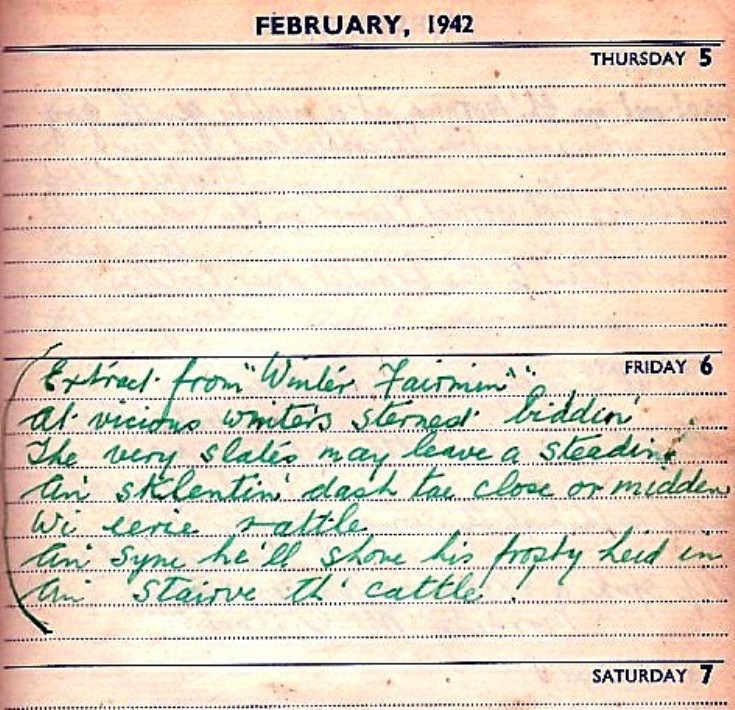 FEBRUARY, 1942
THURSDAY 5
FRIDAY 6
(Extract from "Winter Fairmin"
At vicious winter's sternest biddin'
The very slates may leave a steadin'
An' sklentin' dash tae close or midden
Wi eerie rattle
An' syne he'll shove his frosty heid in
An' stairve th' cattle.
SATURDAY 7